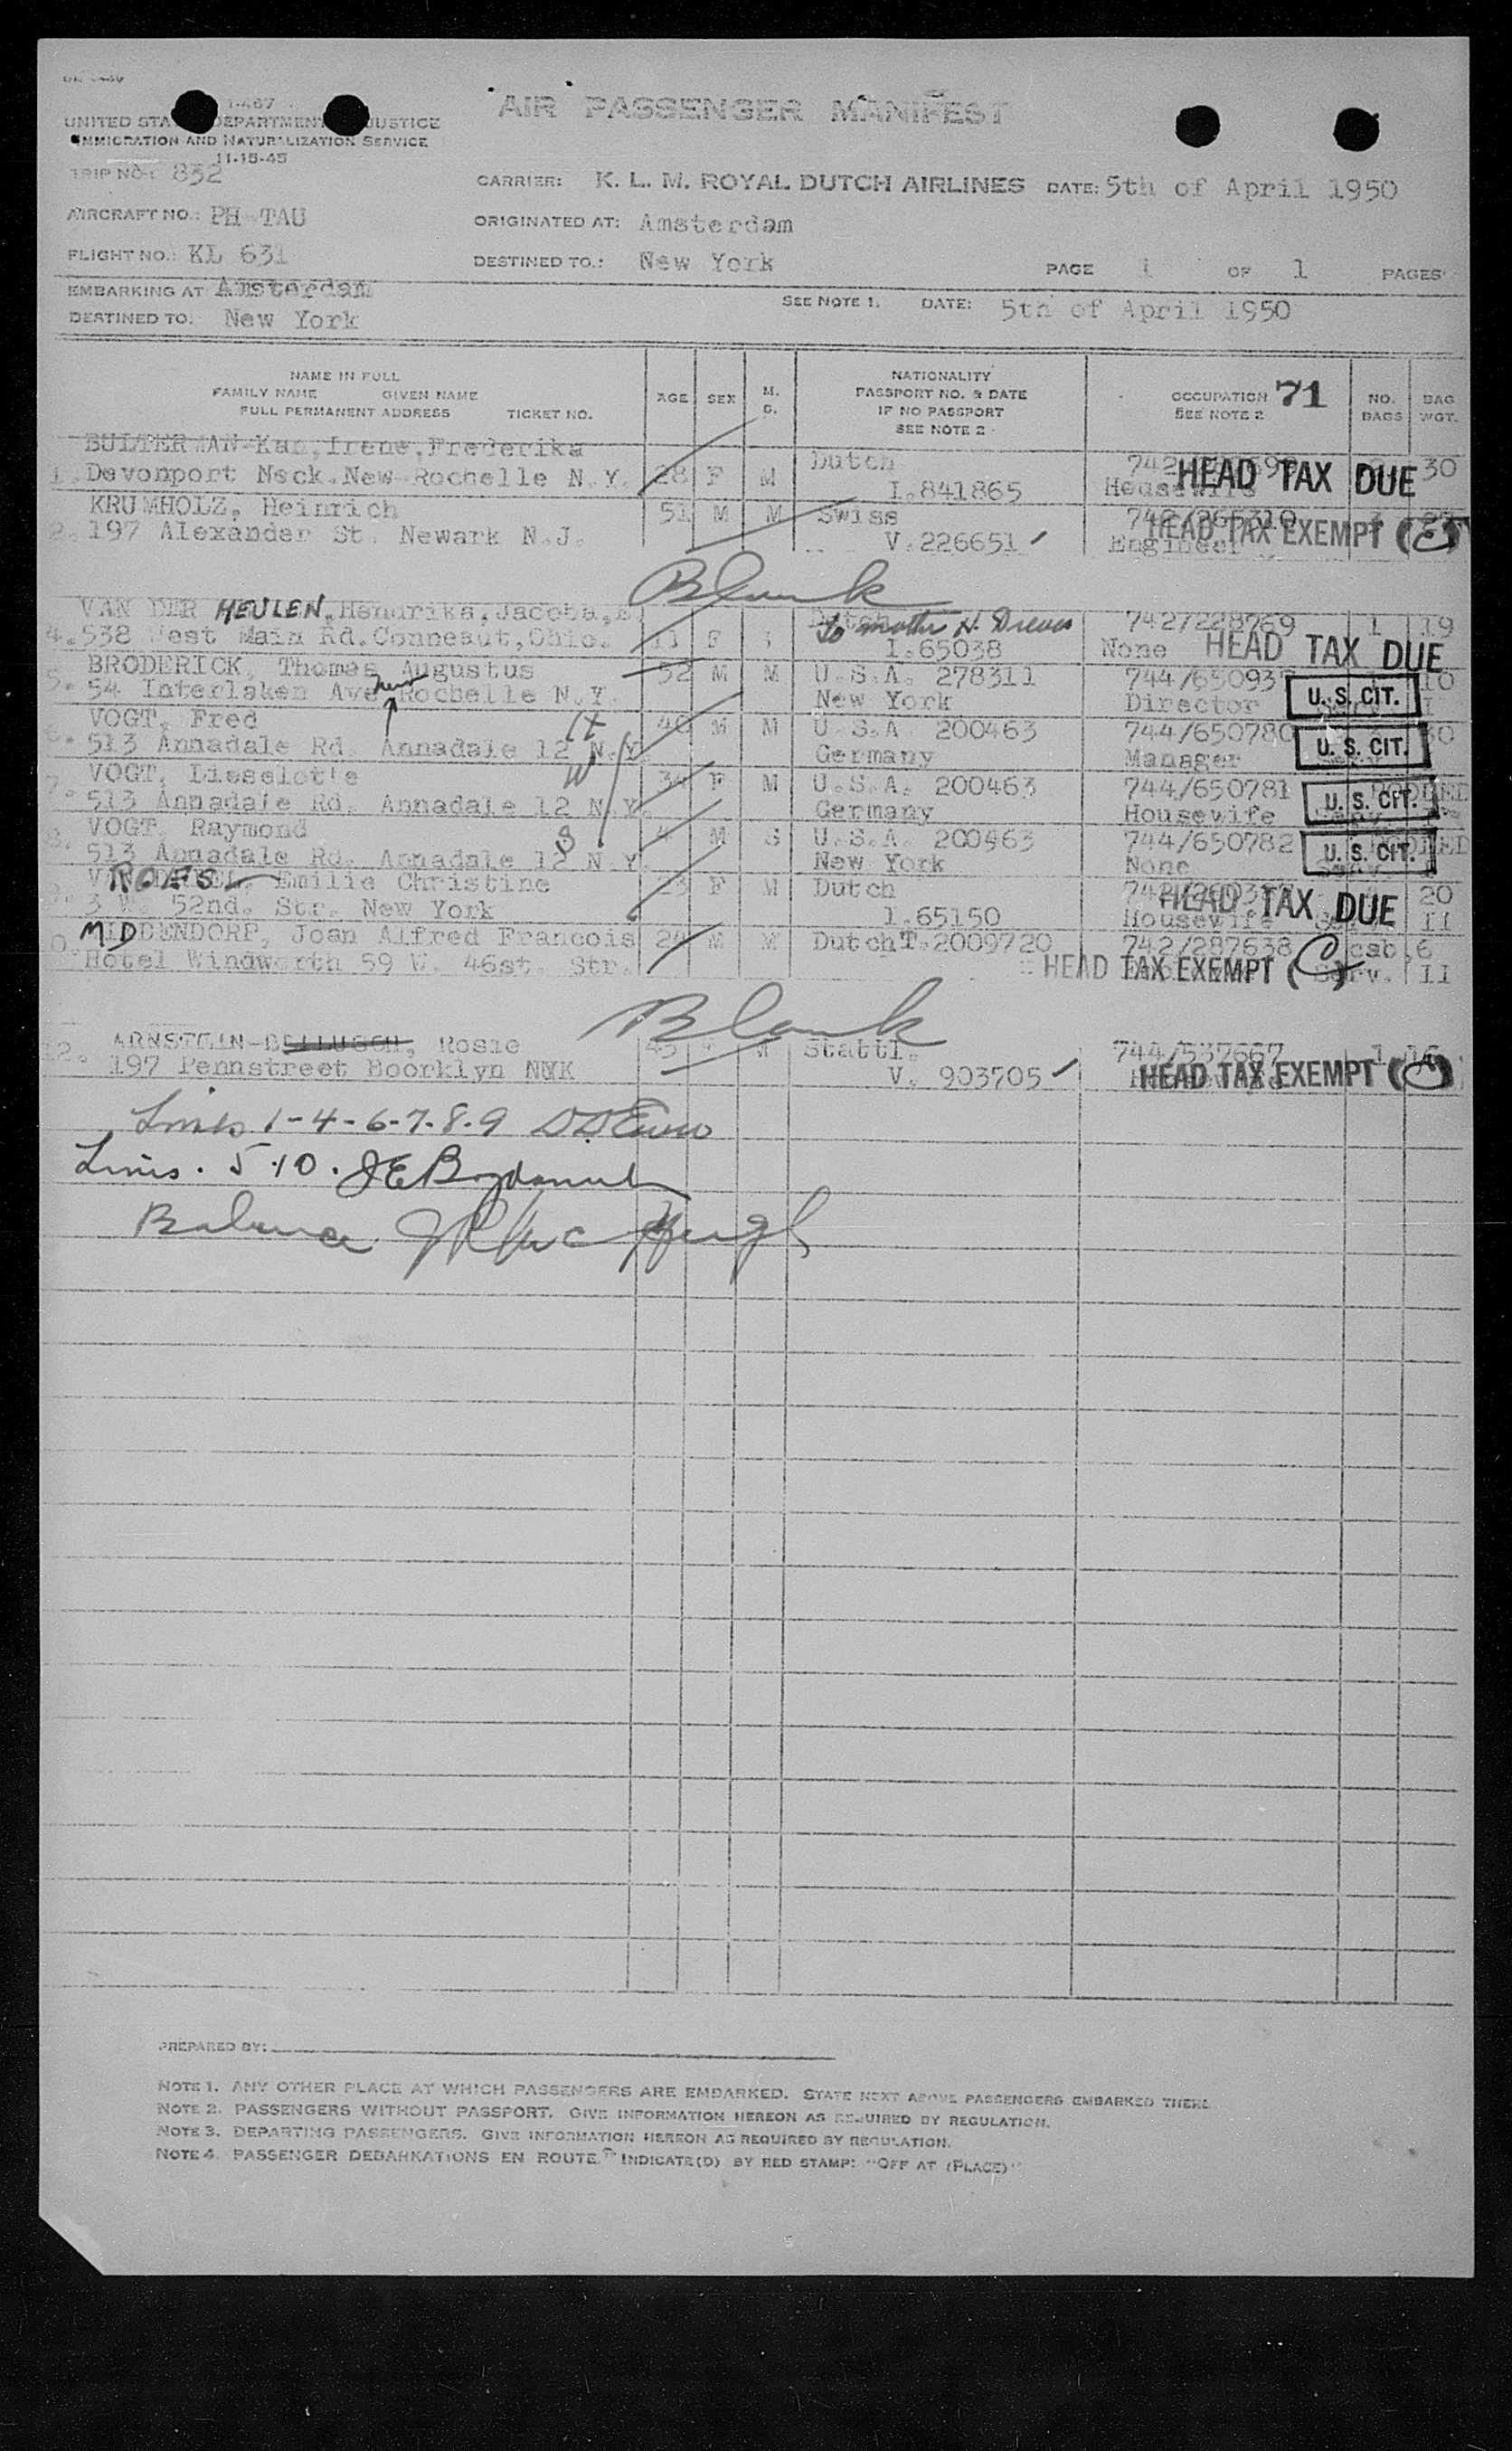 1-467
UNITED STA DEPARTMENT JUSTICE
IMMIGRATION AND NATURALIZATION SERVICE
11-15-45
AIR PASSENGER MANIFEST
TRIP NO.: 832
CARRIER: K. L. M. ROYAL DUTCH AIRLINES DATE: 5th of April 1950
AIRCRAFT NO.: PH TAU
ORIGINATED AT: Amsterdam
FLIGHT NO.: KL 631
DESTINED TO.: New York
PAGE 1 OF 1 PAGES
EMBARKING AT Amsterdam
SEE NOTE 1. DATE: 5th of April 1950
DESTINED TO. New York
NAME IN FULL
FAMILY NAME GIVEN NAME
FULL PERMANENT ADDRESS TICKET NO.
AGE SEX M. S.
NATIONALITY
PASSPORT NO. & DATE
IF NO PASSPORT
SEE NOTE 2
OCCUPATION 71
SEE NOTE 2
NO. BAGS
BAG WGT.
BULTERMAN-Kan, Irene, Frederika Dutch
1. Davonport Neck. New Rochelle N.Y. 28 F M I.841865 Housewife HEAD TAX DUE 30
KRUMHOLZ, Heinrich 51 M M Swiss
2. 197 Alexander St. Newark N.J. V.226651 ✓ Engineer HEAD TAX EXEMPT
Blank
VAN DER MEULEN, Hendrika, Jacoba, to mother H. 742/228769 1 19
4. 538 West Main Rd. Conneaut, Ohio. 11 F 1.65038 None HEAD TAX DUE
BRODERICK, Thomas Augustus 52 M M U.S.A. 278311 10
5. 54 Interlaken Ave new Rochelle N.Y. New York Director U.S. CIT.
VOGT, Fred H 40 M M U.S.A. 200463 744/650780 30
6. 513 Annadale Rd. Annadale 12 N.Y. Germany Manager U.S. CIT.
VOGT, Lieselotte W 34 F M U.S.A. 200463 744/650781
7. 513 Annadale Rd. Annadale 12 N.Y. Germany Housewife U.S. CIT.
VOGT, Raymond S 4 M S U.S.A. 200463 744/650782
8. 513 Annadale Rd. Annadale 12 N.Y. New York None U.S. CIT.
ROEFS Emilie Christine 23 F M Dutch 20
9. 3 W. 52nd. Str. New York 1.65150 Housewife HEAD TAX DUE 11
MIDDENDORP, Joan Alfred Francois 24 M M Dutch T.2009720 742/287638 6
10. Hotel Windworth 59 W. 46st. Str. HEAD TAX EXEMPT (C) Serv. 11
Blank
ARNSTEIN-, Rosie 744/537667 1
12. 197 Pennstreet Boorklyn V. 903705 ✓ HEAD TAX EXEMPT
Lines 1-4-6-7-8-9
Lines. 5.10.
Balance
PREPARED BY:
NOTE 1. ANY OTHER PLACE AT WHICH PASSENGERS ARE EMBARKED. STATE NEXT ABOVE PASSENGERS EMBARKED THERE.
NOTE 2. PASSENGERS WITHOUT PASSPORT. GIVE INFORMATION HEREON AS REQUIRED BY REGULATION.
NOTE 3. DEPARTING PASSENGERS. GIVE INFORMATION HEREON AS REQUIRED BY REGULATION.
NOTE 4. PASSENGER DEBARKATIONS EN ROUTE. INDICATE(D) BY RED STAMP: "OFF AT (PLACE)"